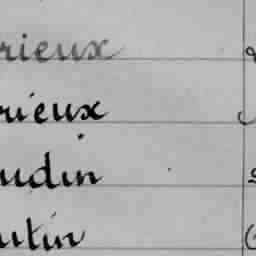 rieux
rieux
udin
utin